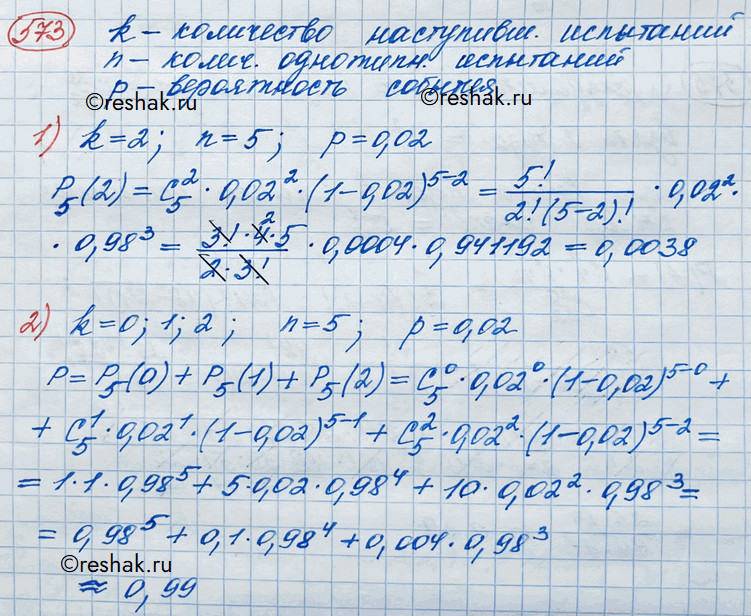 573 k – количество наступивш. испытаний
n – колич. однотипн. испытаний
p – вероятность события
©reshak.ru ©reshak.ru
1) k=2; n=5; p=0,02
P₅(2) = C₅² · 0,02² · (1–0,02)⁵⁻² = 5!/(2!(5–2)!) · 0,02² ·
· 0,98³ = (3!·4·5)/(2·3!) 2 · 0,0004 · 0,941192 = 0,0038
2) k=0; 1; 2; n=5; p=0,02
P = P₅(0) + P₅(1) + P₅(2) = C₅⁰ · 0,02⁰ · (1–0,02)⁵⁻⁰ +
+ C₅¹ · 0,02¹ · (1–0,02)⁵⁻¹ + C₅² · 0,02² · (1–0,02)⁵⁻² =
= 1·1·0,98⁵ + 5·0,02·0,98⁴ + 10·0,02²·0,98³ =
= 0,98⁵ + 0,1·0,98⁴ + 0,004·0,98³
©reshak.ru ©reshak.ru
≈ 0,99